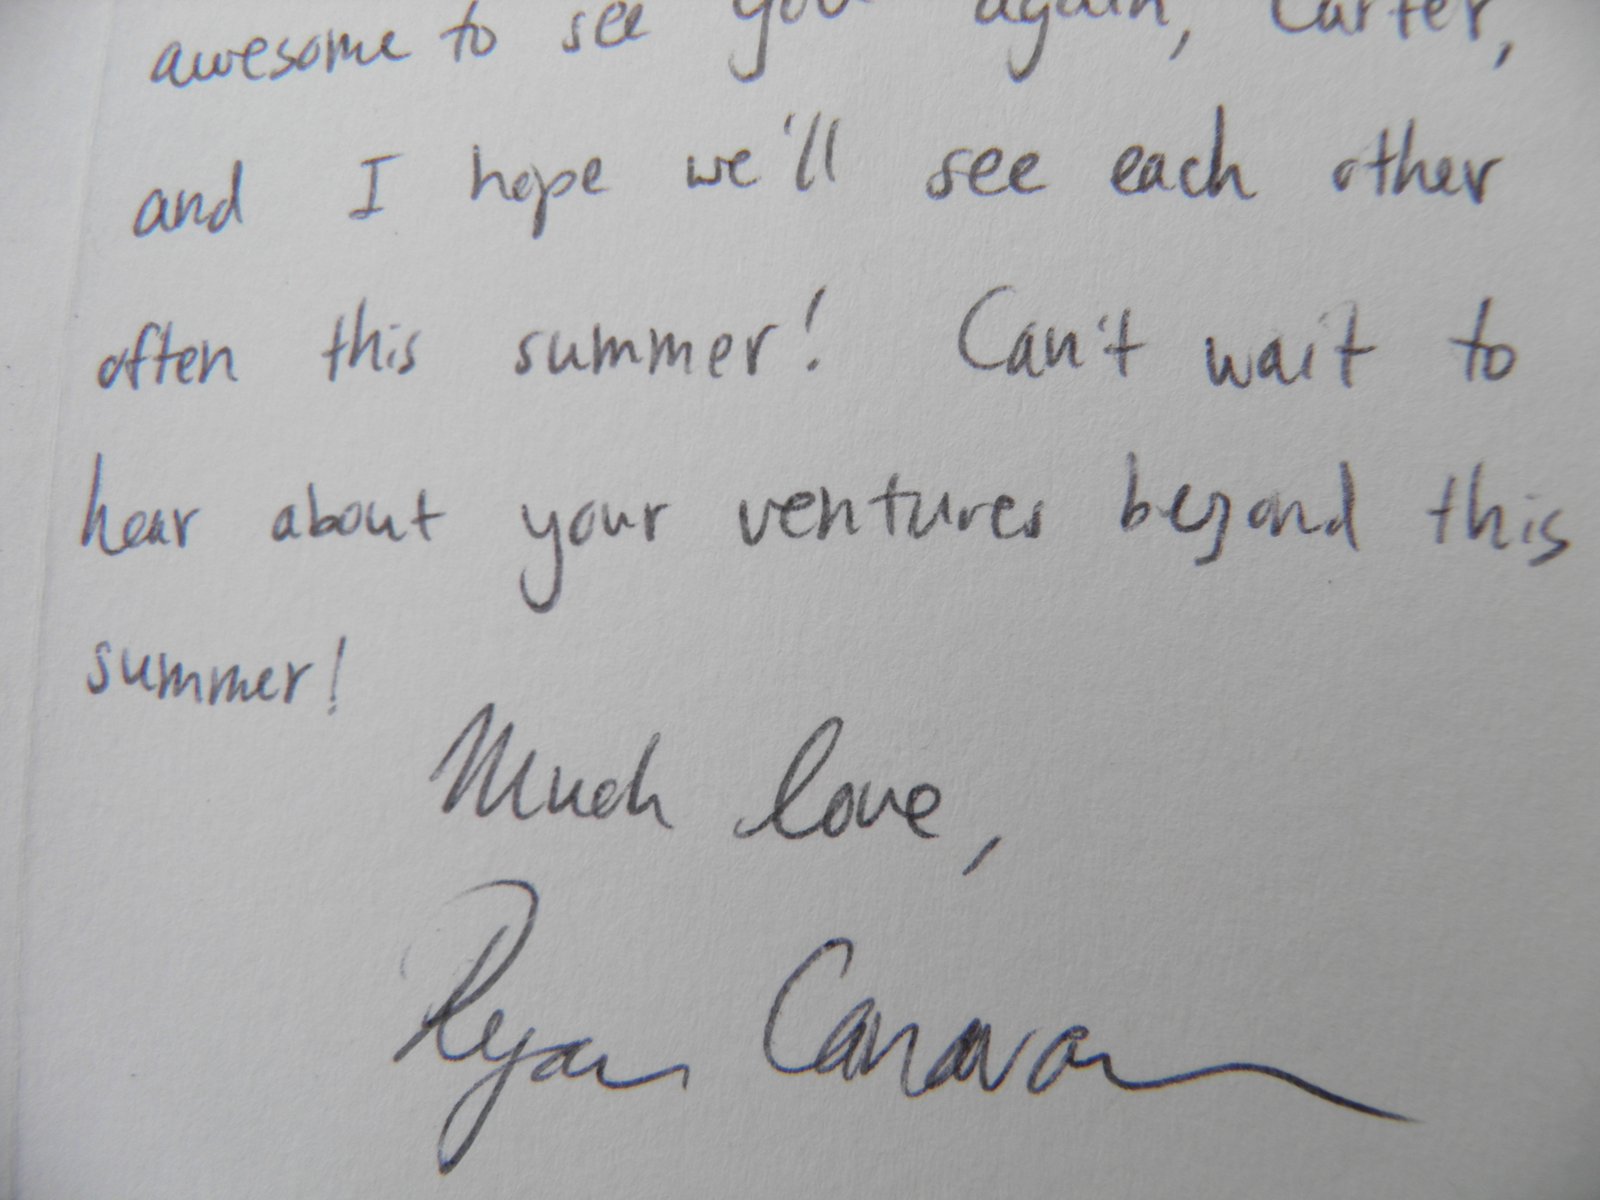 awesome to see you again, Carter,
and I hope we'll see each other
often this summer! Can't wait to
hear about your ventures beyond this
summer!
Much love,
Ryan Canavan